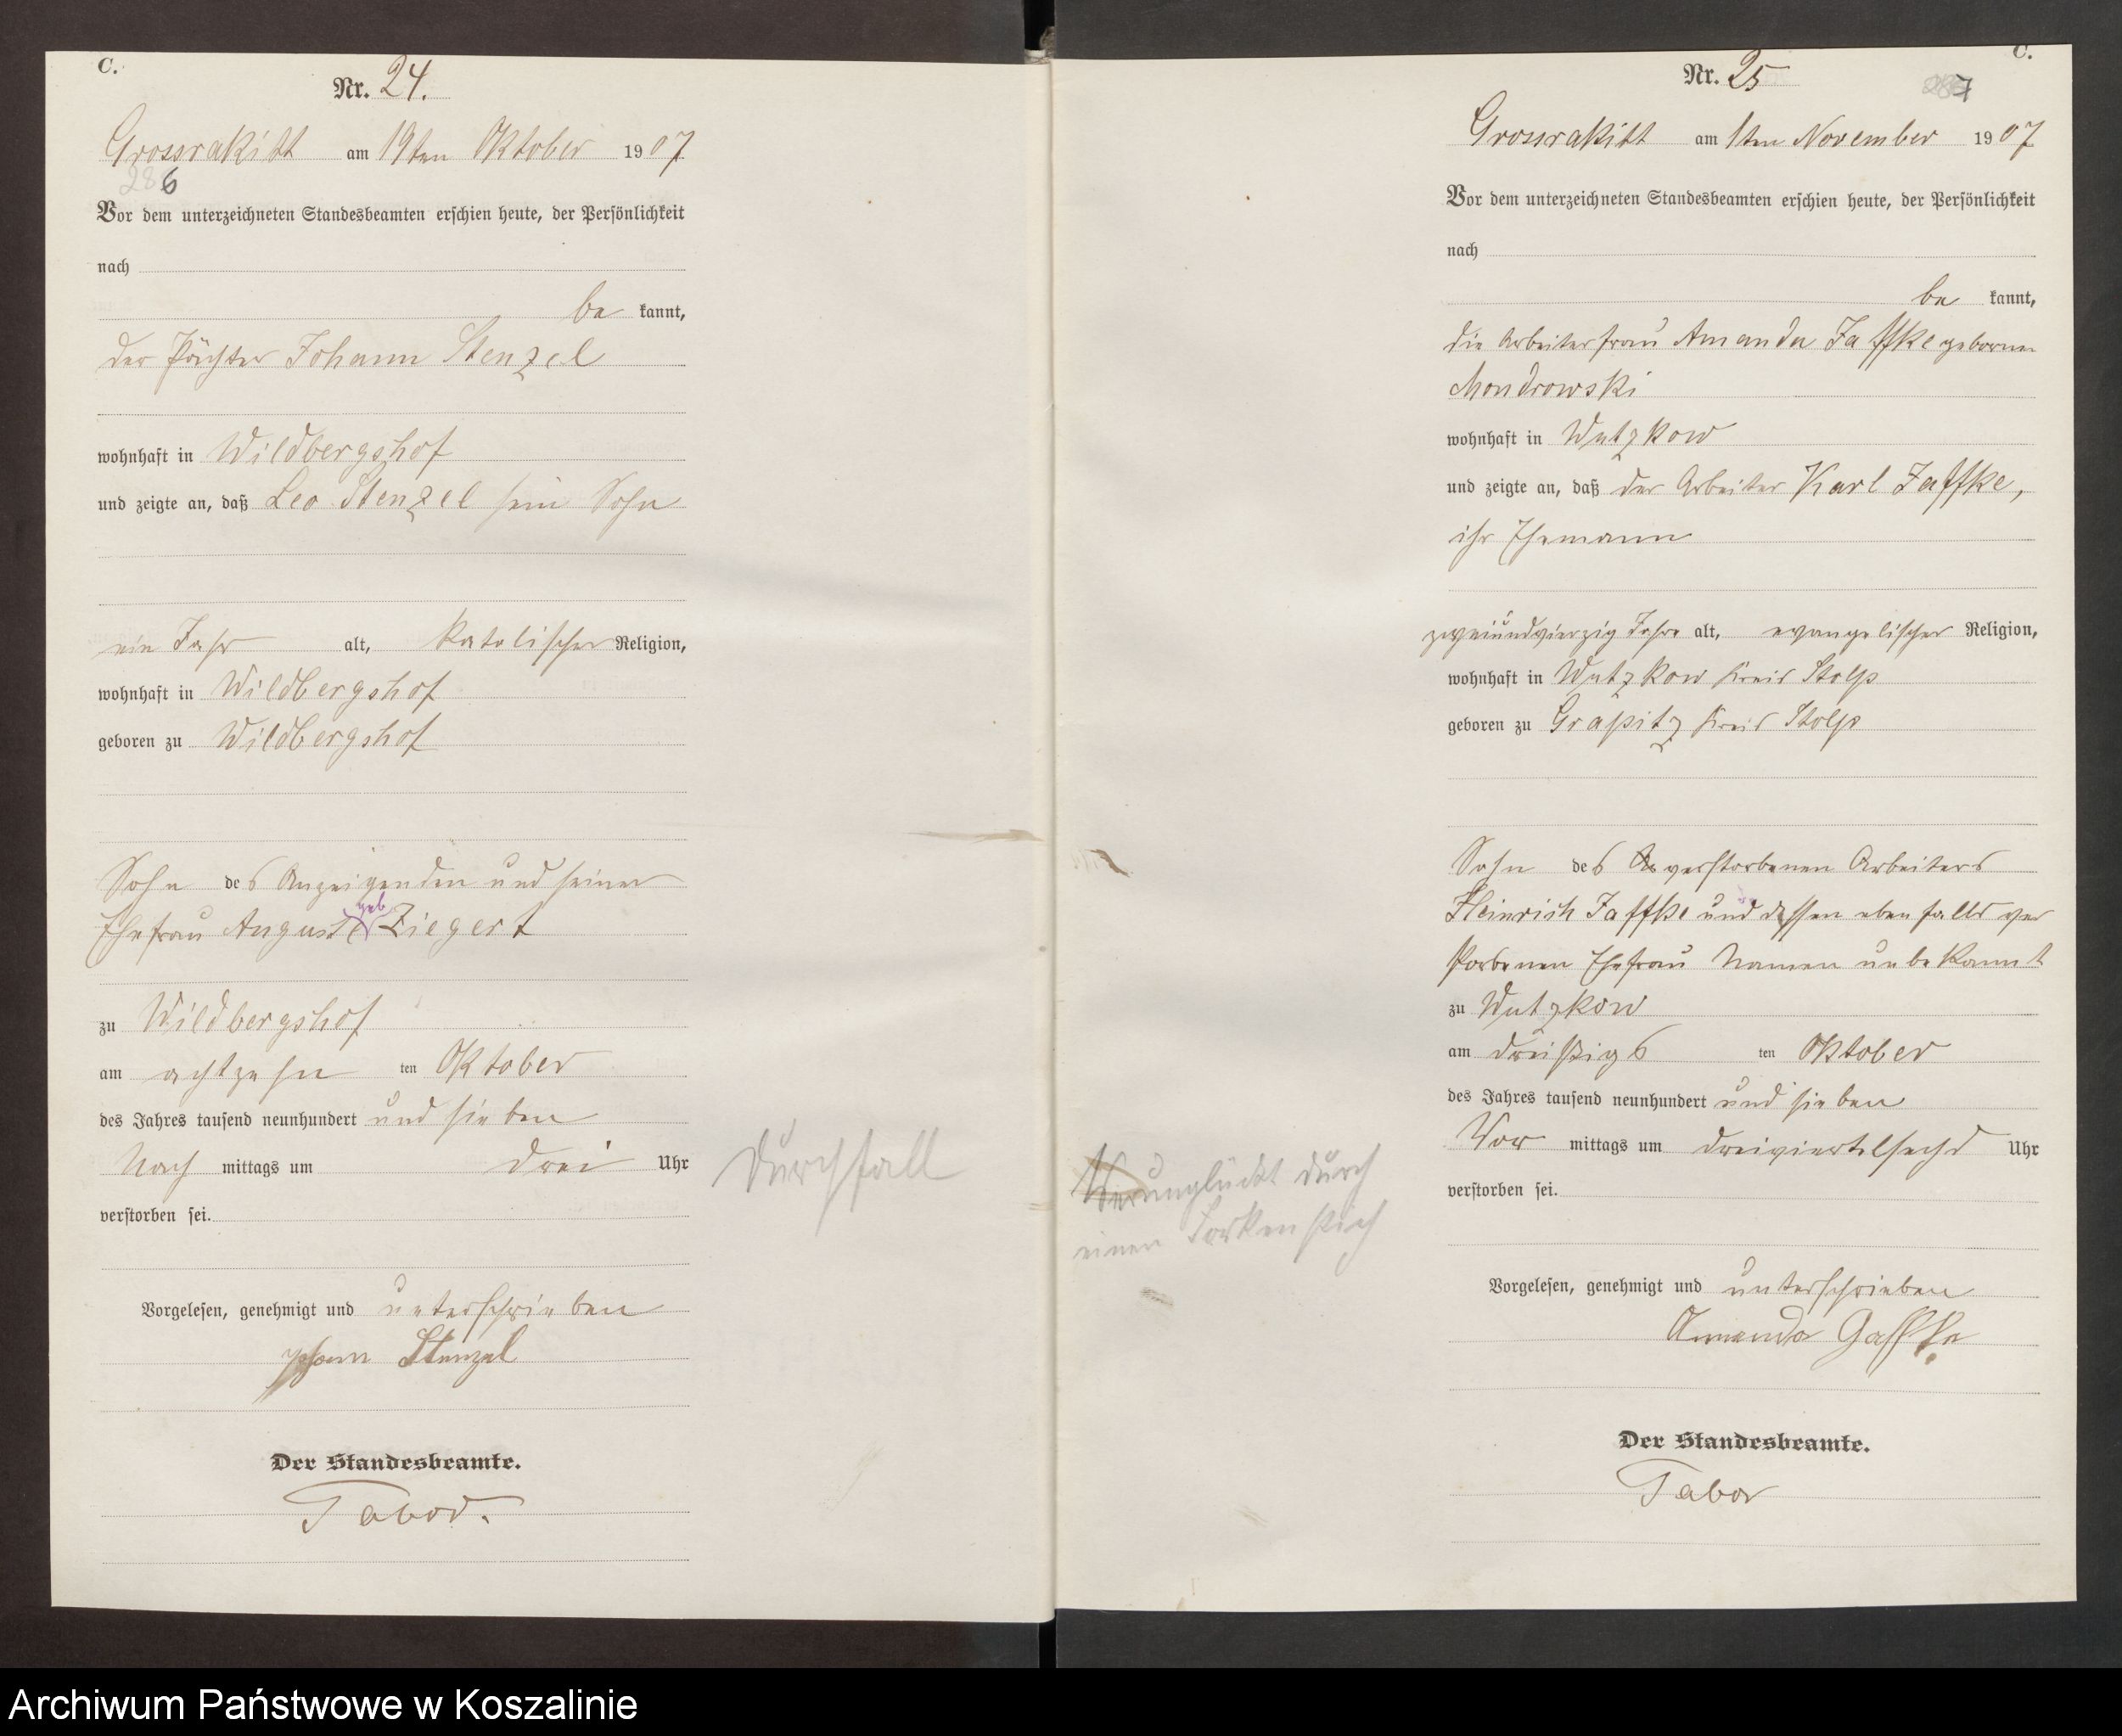 C.
Nr. 24.
Grossrakitt am 19ten Oktober 1907
286
Vor dem unterzeichneten Standesbeamten erschien heute, der Persönlichkeit
nach
be kannt,
der Pächter Johann Stenzel
wohnhaft in Wildbergshof
und zeigte an, daß Leo Stenzel sein Sohn
ein Jahr alt, katolischer Religion,
wohnhaft in Wildbergshof
geboren zu Wildbergshof
Sohn des Anzeigenden und seiner
geb.
Ehefrau Auguste Ziegert
zu Wildbergshof
am achtzehn ten Oktober
des Jahres tausend neunhundert und sieben
Nach mittags um drei Uhr
verstorben sei.
Durchfall
Vorgelesen, genehmigt und unterschrieben
Johann Stenzel
Der Standesbeamte.
Tabor.
C.
Nr. 25
287
Grossrakitt am 1ten November 1907
Vor dem unterzeichneten Standesbeamten erschien heute, der Persönlichkeit
nach
be kannt,
die Arbeiterfrau Amanda Jaffke geborene
Mondrowski
wohnhaft in Wutzkow
und zeigte an, daß der Arbeiter Karl Jaffke,
ihr Ehemann
zweiundvierzig Jahre alt, evangelischer Religion,
wohnhaft in Wutzkow Kreis Stolp
geboren zu Grapitz Kreis Stolp
Sohn des verstorbenen Arbeiters
Heinrich Jaffke und dessen ebenfalls ver
storbenen Ehefrau Namen unbekannt
zu Wutzkow
am dreißigs ten Oktober
des Jahres tausend neunhundert und sieben
Vor mittags um dreiviertelsechs Uhr
verstorben sei.
Verunglückt durch
einen Forkenstich
Vorgelesen, genehmigt und unterschrieben
Amanda Jaffke
Der Standesbeamte.
Tabor
Archiwum Państwowe w Koszalinie